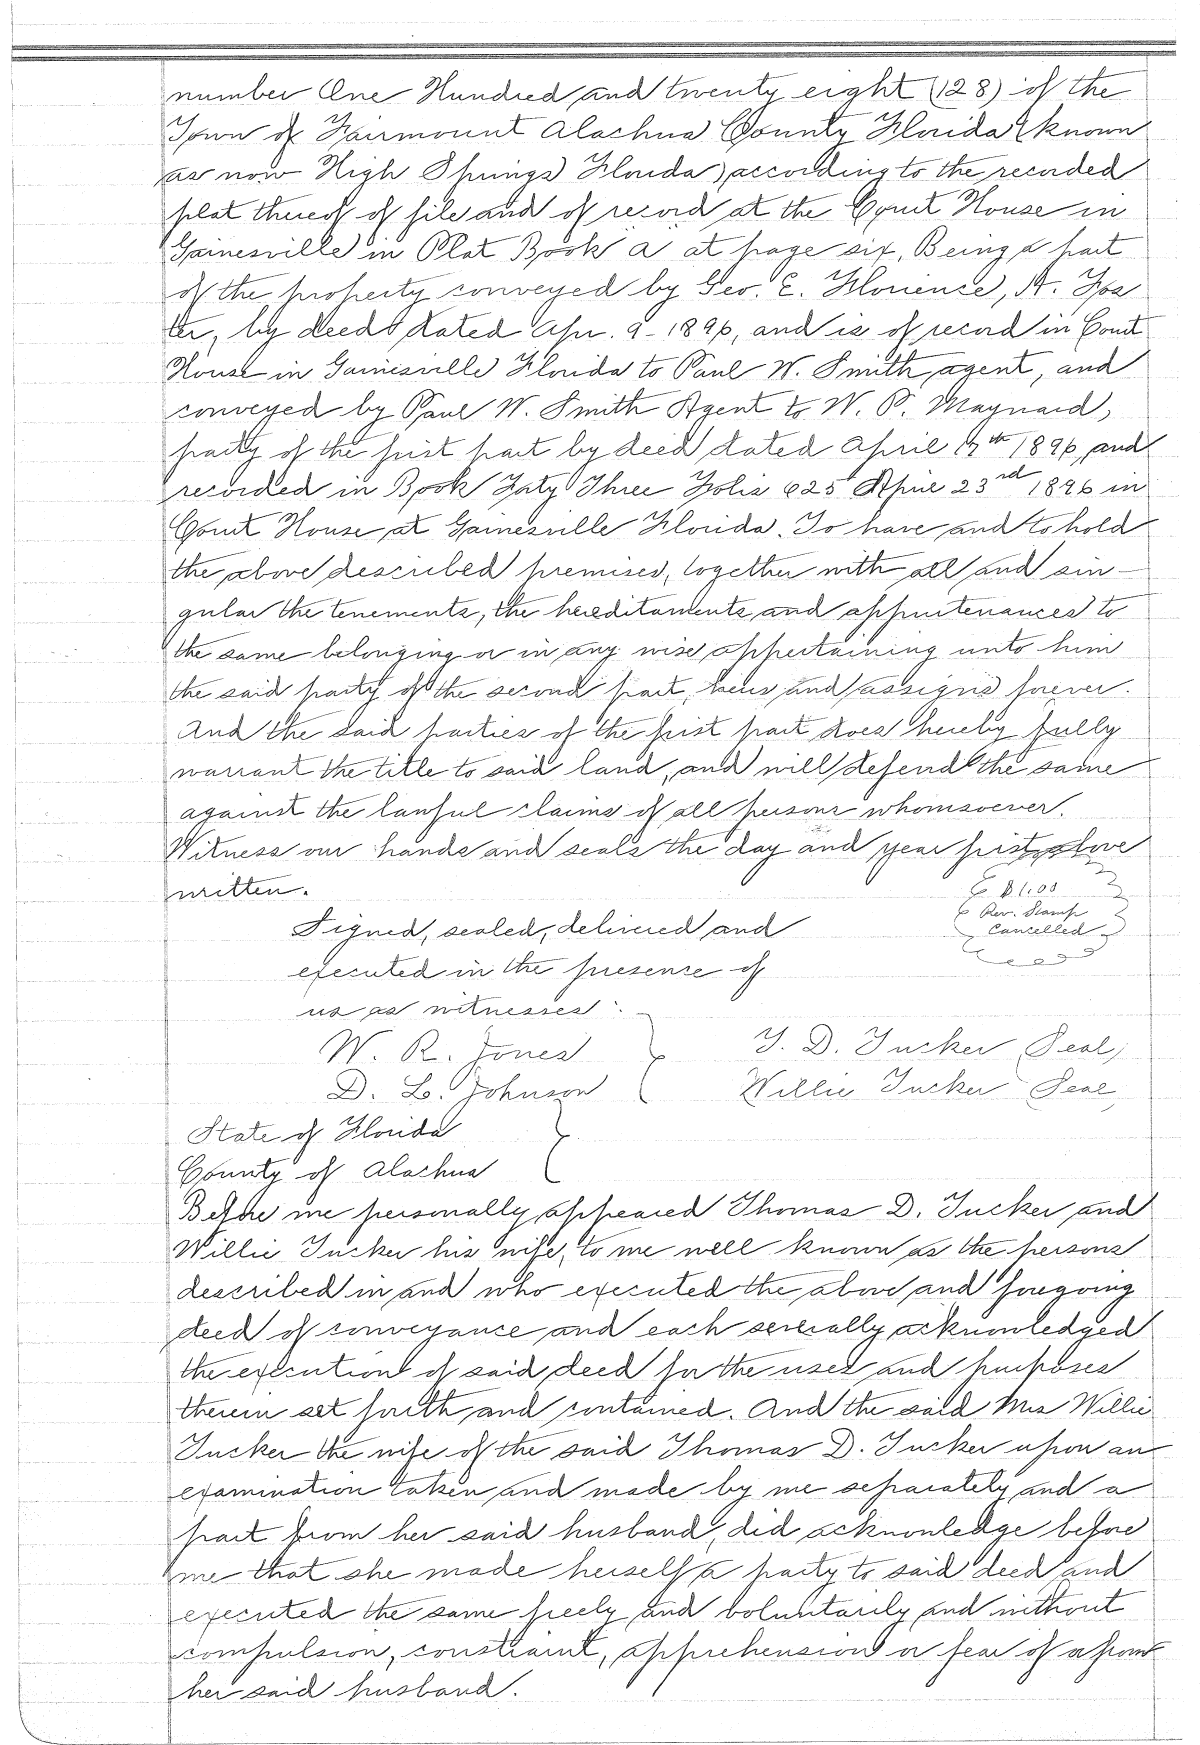 number One Hundred and twenty eight (128) of the
Town of Fairmount Alachua County Florida (known
as now High Springs Florida) according to the recorded
plat thereof of file and of record at the Court House in
Gainesville in Plat Book "a" at page six, Being a part
of the property conveyed by Geo. E. Florience, A. Fos
ter, by deed dated Apr. 9 - 1896, and is of record in Court
House in Gainesville Florida to Paul W. Smith agent, and
conveyed by Paul W. Smith Agent to W. P. Maynard,
party of the first part by deed dated April 1896, and
recorded in Book Forty Three Folio 625 April 23rd 1896 in
Court House at Gainesville Florida. To have and to hold
the above described premises, together with all and sin-
gular the tenements, the hereditaments and appurtenances to
the same belonging or in any wise appertaining unto him
the said party of the second part, heirs and assigns forever.
And the said parties of the first part does hereby fully
warrant the title to said land, and will defend the same
against the lawful claims of all persons whomsoever.
Witness our hands and seals the day and year first above
written.
$1.00
Rev. Stamp
Cancelled
Signed, sealed, delivered and
executed in the presence of
us as witnesses:
W. R. Jones T. D. Tucker (Seal)
D. L. Johnson Willie Tucker (Seal)
State of Florida
County of Alachua
Before me personally appeared Thomas D. Tucker and
Willie Tucker his wife, to me well known as the persons
described in and who executed the above and foregoing
deed of conveyance and each severally acknowledged
the execution of said deed for the uses and purposes
therein set forth and contained. And the said Mrs Willie
Tucker the wife of the said Thomas D. Tucker upon an
examination taken and made by me separately and a
part from her said husband, did acknowledge before
me that she made herself a party to said deed and
executed the same freely and voluntarily and without
compulsion, constraint, apprehension or fear of a from
her said husband.